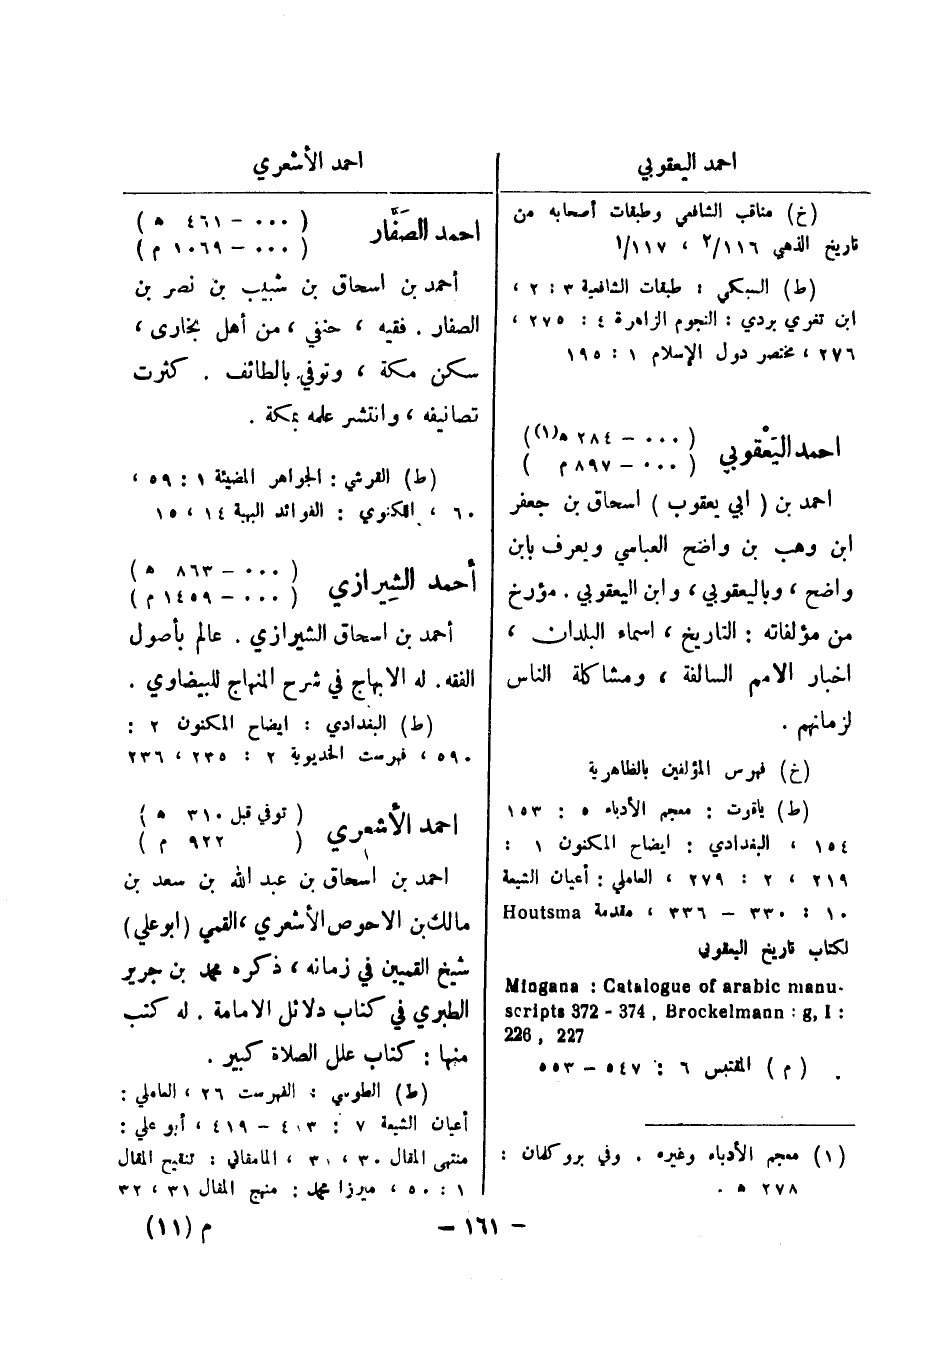 احمد اليعقوبي
(خ) مناقب الشافعي وطبقات أصحابه من
تاريخ الذهبي ٢/١١٦ ، ١/١١٧
(ط) السبكي : طبقات الشافعية ٣ : ٢ ،
ابن تغري بردي : النجوم الزاهرة ٤ : ٢٧٥ ،
٢٧٦ ، مختصر دول الإسلام ١ : ١٩٥
احمد اليَعْقوبي
( ٠٠٠ – ٢٨٤ ھ(١))
( ٠٠٠ – ٨٩٧ م )
احمد بن ( ابي يعقوب ) اسحاق بن جعفر
ابن وهب بن واضح العباسي ويعرف بابن
واضح ، وباليعقوبي ، وابن اليعقوبي . مؤرخ
من مؤلفاته : التاريخ ، اسماء البلدان ،
اخبار الامم السالفة ، ومشاكلة الناس
لزمانهم .
(خ) فهرس المؤلفين بالظاهرية
(ط) ياقوت : معجم الأدباء ٥ : ١٥٣
١٥٤ ، البغدادي : ايضاح المكنون ١ :
٢١٩ ، ٢ : ٢٧٩ ، العاملي : أعيان الشيعة
١٠ : ٣٣٠ – ٣٣٦ ، مقدمة Houtsma
لكتاب تاريخ اليعقوبي
Mingana : Catalogue of arabic manu-
scripts 372 - 374 , Brockelmann : g, I :
226 , 227
( م ) المقتبس ٦ : ٥٤٧ – ٥٥٣ .
(١) معجم الأدباء وغيره . وفي بروكلمان :
٢٧٨ ھ .
احمد الأشعري
احمد الصَفَّار
( ٠٠٠ – ٤٦١ ھ )
( ٠٠٠ – ١٠٦٩ م )
أحمد بن اسحاق بن شبيب بن نصر بن
الصفار . فقيه ، حنفي ، من أهل بخارى ،
سكن مكة ، وتوفي بالطائف . كثرت
تصانيفه ، وانتشر علمه بمكة .
(ط) القرشي : الجواهر المضيئة ١ : ٥٩ ،
٦٠ ، اللكنوي : الفوائد البهية ١٤ ، ١٥
أحمد الشِيرازي
( ٠٠٠ – ٨٦٣ ھ )
( ٠٠٠ – ١٤٥٩ م )
أحمد بن اسحاق الشيرازي . عالم بأصول
الفقه . له الابهاج في شرح المنهاج للبيضاوي .
(ط) البغدادي : ايضاح المكنون ٢ :
٥٩٠ ، فهرست الخديوية ٢ : ٢٣٥ ، ٢٣٦
احمد الأشعري
( توفي قبل ٣١٠ ھ )
( ٩٢٢ م )
احمد بن اسحاق بن عبد الله بن سعد بن
مالك بن الاحوص الأشعري ، القمي (ابو علي)
شيخ القميين في زمانه ، ذكره محمد بن جرير
الطبري في كتاب دلائل الامامة . له كتب
منها : كتاب علل الصلاة كبير .
(ط) الطوسي : الفهرست ٢٦ ، العاملي :
أعيان الشيعة ٧ : ٤٠٣ – ٤١٩ ، أبو علي :
منتهى المقال ٣٠ ، ٣١ ، المامقاني : تنقيح المقال
١ : ٥٠ ، ميرزا محمد : منهج المقال ٣١ ، ٣٢
– ١٦١ –
م (١١)